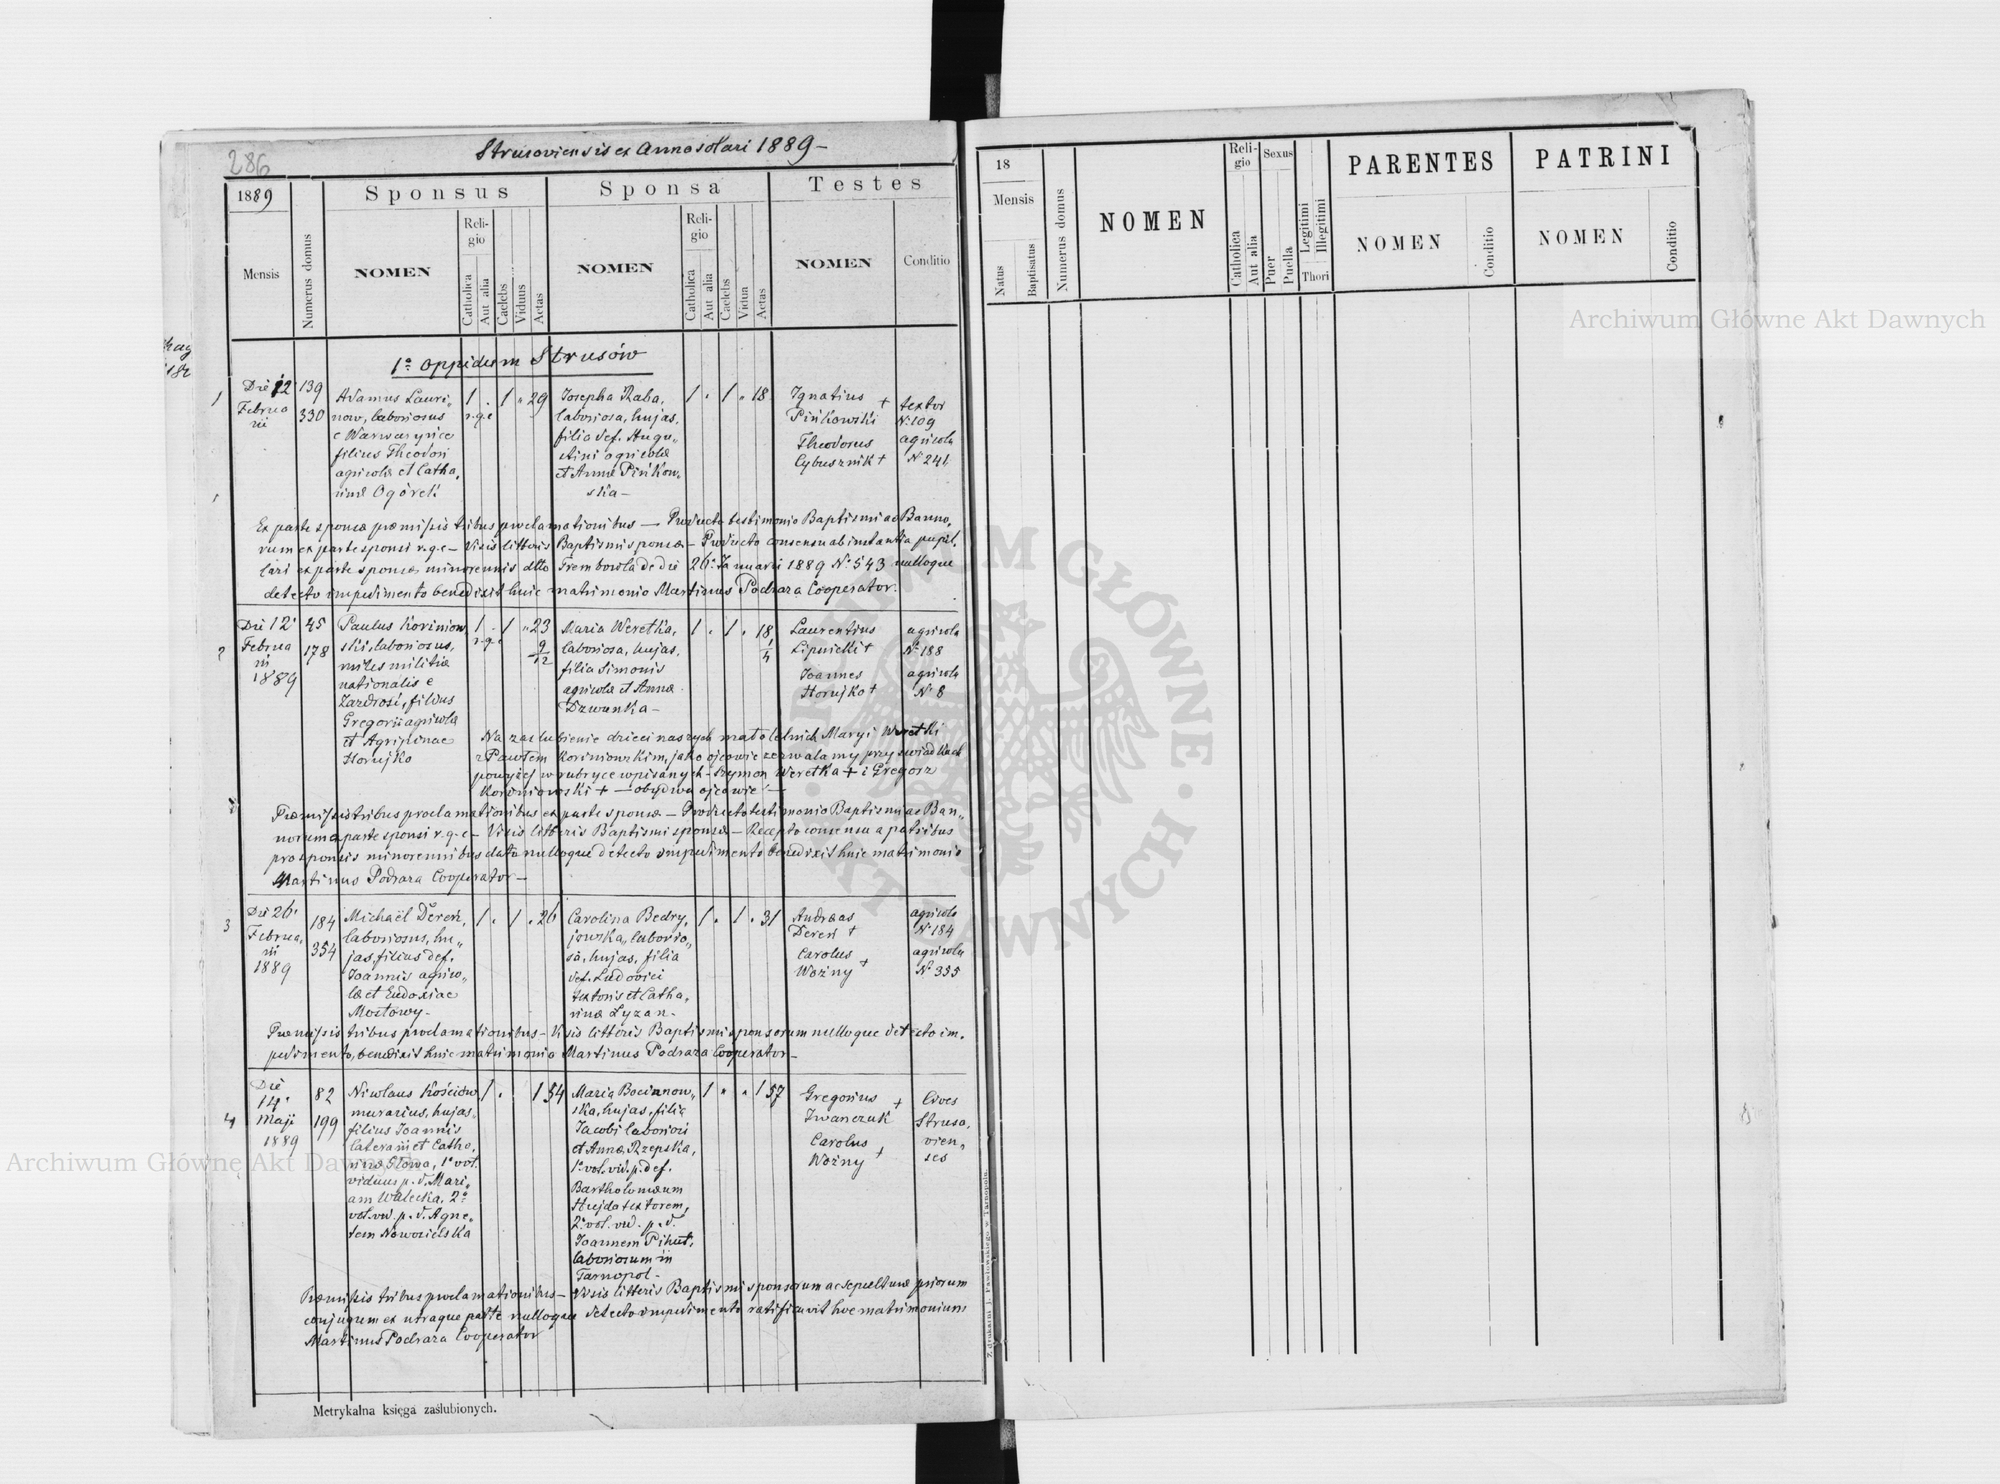 286
Strusoviensis ex Anno solari 1889 -
1889
Mensis
Numerus domus
Sponsus
NOMEN
Religio
Catholica
Aut alia
Caelebs
Viduus
Aetas
Sponsa
NOMEN
Religio
Catholica
Aut alia
Caelebs
Vidua
Aetas
Testes
NOMEN
Conditio
1º oppidum Strusów
1
Die 12
Februa
rii
139
330
Adamus Lauri-
now, laboriosus
e Warwaryńce
filius Theodori
agricolæ et Catha,
rinæ Ogórek
1 . 1 " 29
r.g.c
Josepha Raba,
laboriosa, hujas,
filia def. Augu,,
stini agricolæ
et Annæ Pińkow,
ska -
1 . 1 " 18
Ignatius +
Pińkowski
Theodorus
Cybusznik +
textor
Nº 109
agricola
Nº 241
Ex parte sponsæ præmissis tribus proclamationibus — Producto testimonio Baptismi ac Banno,
rum ex parte sponsi r.g.c - Visis litteris Baptismi sponsæ - Producto consensu ab instantia pupil,
lari ex parte sponsæ minorennis dtto Trembowla de die 26. Januarii 1889 Nº 543 nulloque
detecto impedimento benedixit huic matrimonio Martinus Podraza Cooperator.
2
Die 12'
Februa
rii
1889
45
178
Paulus Koriniow,
ski, laboriosus,
miles militiæ
nationalis e
Zazdrość, filius
Gregorii agricolæ
et Agripinae
Horujko
1 . 1 " 23
r.g.c
9/12
Maria Weretka,
laboriosa, hujas,
filia Simonis
agricolæ et Annæ
Dzwonka -
1 . 1 . 18
1/4
Laurentius
Lipnicki +
Joannes
Horujko +
agricola
Nº 188
agricola
Nº 8
Na zaślubienie dzieci naszych małoletnich Maryi Weretki
z Pawłem Koriniowskim, jako ojcowie zezwalamy przy świadkach
powyżej w rubryce wpisanych - Szymon Weretka + i Gregorz
Koriniowski + — obydwa ojcowie —
Præmissis tribus proclamationibus ex parte sponsæ - Producto testimonio Baptismi ac Ban,,
norum a parte sponsi r.g.c - Visis litteris Baptismi sponsæ - Recepto consensu a patribus
pro sponsis minorennibus dato nulloque detecto impedimento benedixit huic matrimonio
Martinus Podraza Cooperator -
3
Die 26'
Februa,
rii
1889
184
354
Michaël Dereń,
laboriosus, hu,,
jas, filius def.
Joannis agrico,,
læ et Eudoxiae
Mostowy -
1 . 1 . 26
Carolina Bedry,
jowska, laborio,
sa, hujas, filia
def. Ludovici
textoris et Catha,
rinæ Lyzan -
1 . 1 . 31
Andreas
Dereń +
Carolus
Woźny +
agricola
Nº 184
agricola
Nº 355
Præmissis tribus proclamationibus - Visis litteris Baptismi sponsorum nulloque detecto im,
pedimento, benedixit huic matrimonio Martinus Podraza Cooperator -
4
Die
14'
Maji
1889
82
199
Nicolaus Kościów
murarius, hujas,
filius Joannis
laterarii et Catha,
rinæ Głowa, 1º vot.
viduus p. d. Mari,
am Walecka, 2º
vot. vid. p. d. Agne,
tem Nowosielska
1 . 1 54
Maria Bocianow,,
ska, hujas, filia
Jacobi laboriosi
et Annæ Rzepska,
1º vot. vid. p. def.
Bartholomæum
Hujda textorem,
2º vot. vid. p. d.
Joannem Pihut,
laboriosum in
Tarnopol -
1 " " 1 57
Gregorius +
Iwanczuk
Carolus +
Woźny
Cives
Struso,
vien,,
ses
Præmissis tribus proclamationibus - Visis litteris Baptismi sponsorum ac sepulturæ priorum
conjugum ex utraque parte nulloque detecto impedimento ratificavit hoc matrimonium
Martinus Podraza Cooperator
Metrykalna księga zaślubionych.
Z drukarni J. Pawłowskiego w Tarnopolu.
18
Mensis
Natus
Baptisatus
Numerus domus
NOMEN
Religio
Catholica
Aut alia
Sexus
Puer
Puella
Legitimi
Illegitimi
Thori
PARENTES
NOMEN
Conditio
PATRINI
NOMEN
Conditio
Archiwum Główne Akt Dawnych
Archiwum Główne Akt Dawnych
ARCHIWUM GŁÓWNE · AKT DAWNYCH ·